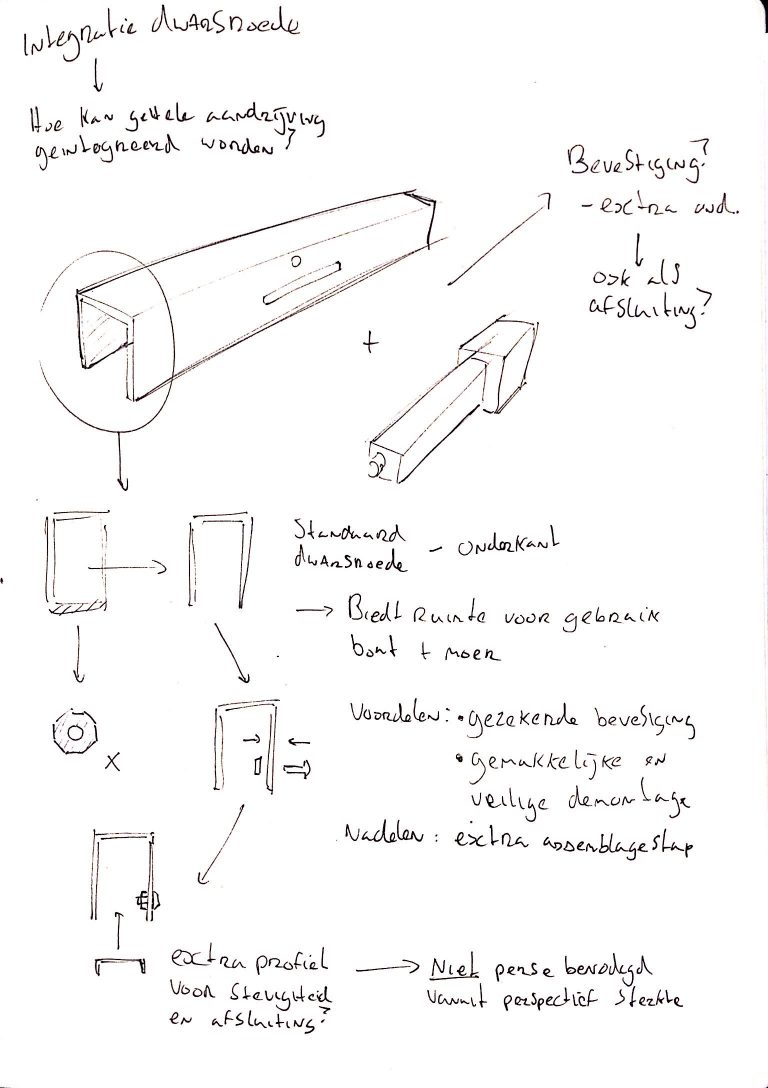 Integratie dwarsroede
Hoe kan gehele aandrijving
geintegreerd worden?
Bevestiging?
- extra ond.
ook als
afsluiting?
+
Standaard
dwarsroede - onderkant
→ Biedt ruimte voor gebruik
bout + moer
x
Voordelen: • gezekerde bevestiging
• gemakkelijke en
veilige demontage
Nadelen: extra assemblagestap
extra profiel
voor stevigheid
en afsluiting?
→ Niet perse benodigd
vanuit perspectief sterkte